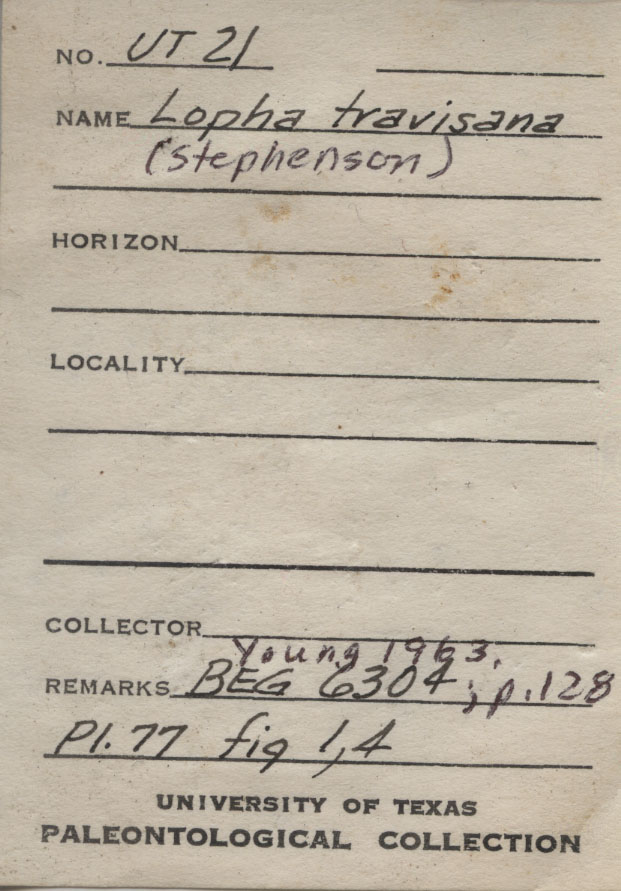 NO. UT 21
NAME Lopha travisana
(Stephenson)
HORIZON
LOCALITY
COLLECTOR
Young 1963.
REMARKS BEG 6304; p.128
Pl. 77 fig 1,4
UNIVERSITY OF TEXAS
PALEONTOLOGICAL COLLECTION